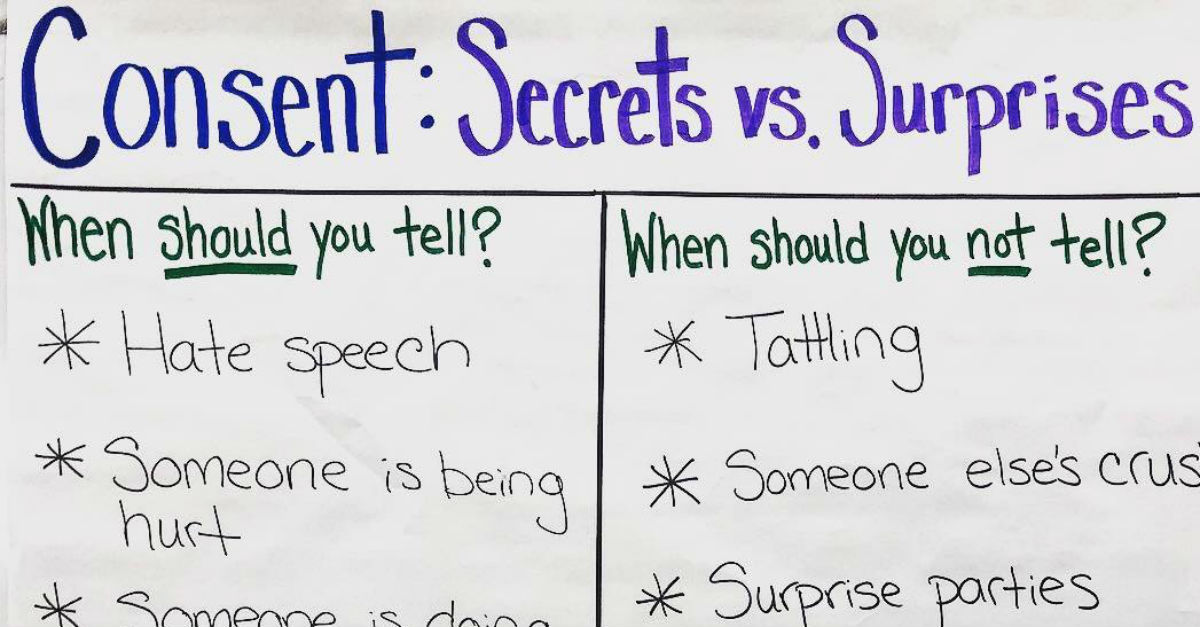 Consent: Secrets vs. Surprises
When should you tell?
* Hate speech
* Someone is being
hurt
* Someone is doing
When should you not tell?
* Tattling
* Someone else's crus
* Surprise parties